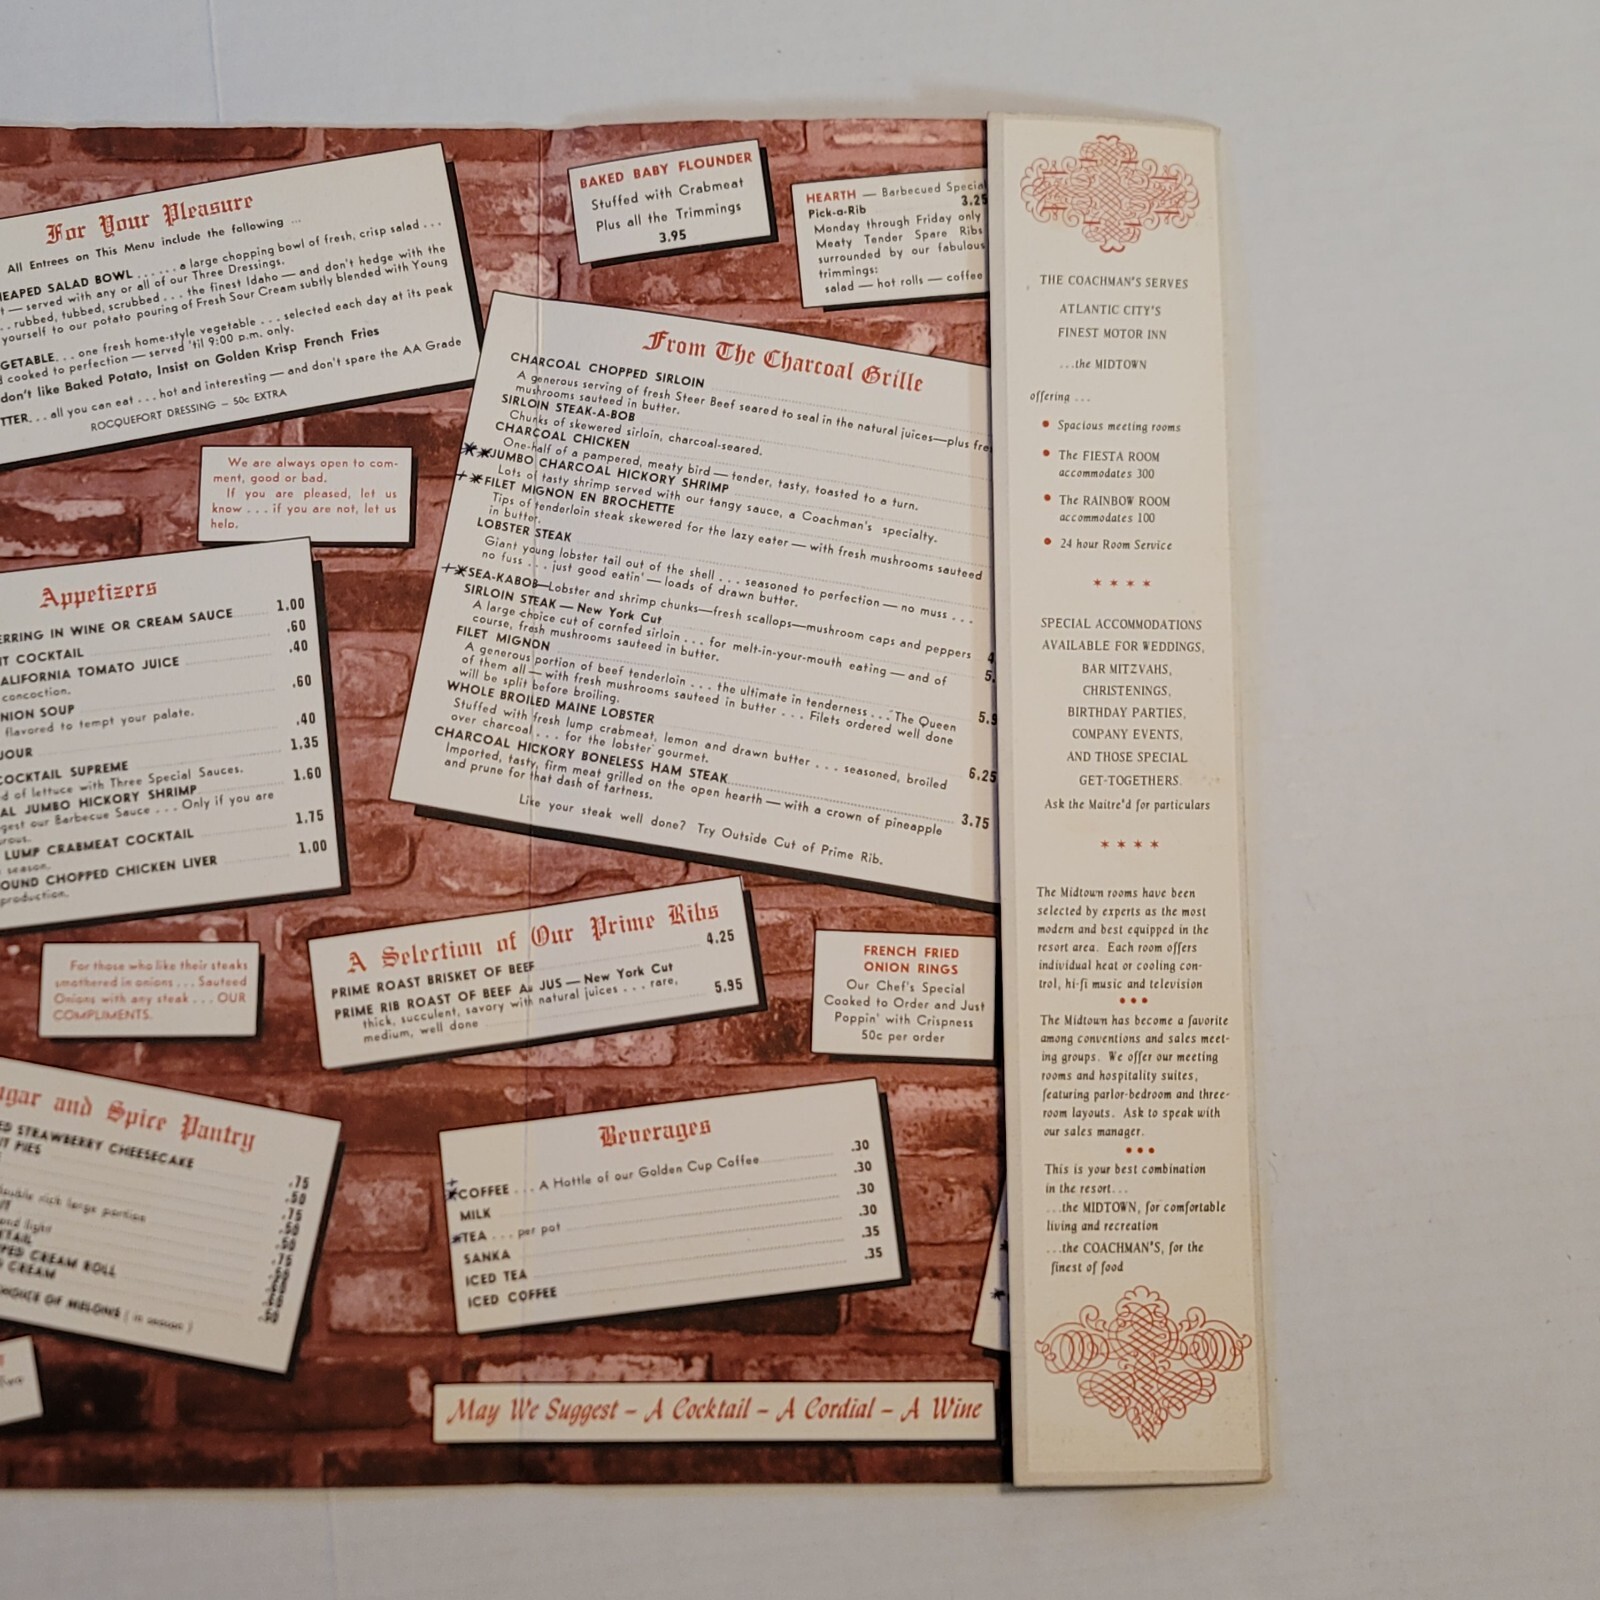 For Your Pleasure
All Entrees on This Menu include the following ...
HEAPED SALAD BOWL ...... a large chopping bowl of fresh, crisp salad ...
— served with any or all of our Three Dressings.
.. rubbed, tubbed, scrubbed ... the finest Idaho — and don't hedge with the
yourself to our potato pouring of Fresh Sour Cream subtly blended with Young
GETABLE... one fresh home-style vegetable ... selected each day at its peak
cooked to perfection — served 'til 9:00 p.m. only.
don't like Baked Potato, Insist on Golden Krisp French Fries
TTER... all you can eat ... hot and interesting — and don't spare the AA Grade
ROCQUEFORT DRESSING — 50c EXTRA
We are always open to com-
ment, good or bad.
If you are pleased, let us
know ... if you are not, let us
help.
Appetizers
ERRING IN WINE OR CREAM SAUCE 1.00
IT COCKTAIL .60
ALIFORNIA TOMATO JUICE .40
concoction.
NION SOUP .60
flavored to tempt your palate.
JOUR .40
COCKTAIL SUPREME 1.35
d of lettuce with Three Special Sauces.
AL JUMBO HICKORY SHRIMP 1.60
gest our Barbecue Sauce ... Only if you are
rous.
LUMP CRABMEAT COCKTAIL 1.75
season.
OUND CHOPPED CHICKEN LIVER 1.00
production.
For those who like their steaks
smothered in onions ... Sauteed
Onions with any steak ... OUR
COMPLIMENTS.
gar and Spice Pantry
ED STRAWBERRY CHEESECAKE .75
IT PIES .50
double rich large portion .75
and light
TAIL
PED CREAM ROLL
CREAM
CHOICE OF MELONS (in season)
BAKED BABY FLOUNDER
Stuffed with Crabmeat
Plus all the Trimmings
3.95
HEARTH — Barbecued Special
Pick-a-Rib 3.25
Monday through Friday only
Meaty Tender Spare Ribs
surrounded by our fabulous
trimmings:
salad — hot rolls — coffee
From The Charcoal Grille
CHARCOAL CHOPPED SIRLOIN
A generous serving of fresh Steer Beef seared to seal in the natural juices—plus fre
mushrooms sauteed in butter.
SIRLOIN STEAK-A-BOB
Chunks of skewered sirloin, charcoal-seared.
CHARCOAL CHICKEN
One-half of a pampered, meaty bird — tender, tasty, toasted to a turn.
**JUMBO CHARCOAL HICKORY SHRIMP
Lots of tasty shrimp served with our tangy sauce, a Coachman's specialty.
+*FILET MIGNON EN BROCHETTE
Tips of tenderloin steak skewered for the lazy eater — with fresh mushrooms sauteed
in butter.
LOBSTER STEAK
Giant young lobster tail out of the shell ... seasoned to perfection — no muss ...
no fuss ... just good eatin' — loads of drawn butter.
+*SEA-KABOB—Lobster and shrimp chunks—fresh scallops—mushroom caps and peppers 4
SIRLOIN STEAK — New York Cut 5.
A large choice cut of cornfed sirloin ... for melt-in-your-mouth eating — and of
course, fresh mushrooms sauteed in butter.
FILET MIGNON 5.9
A generous portion of beef tenderloin ... the ultimate in tenderness ... The Queen
of them all — with fresh mushrooms sauteed in butter ... Filets ordered well done
will be split before broiling.
WHOLE BROILED MAINE LOBSTER 6.25
Stuffed with fresh lump crabmeat, lemon and drawn butter ... seasoned, broiled
over charcoal ... for the lobster gourmet.
CHARCOAL HICKORY BONELESS HAM STEAK 3.75
Imported, tasty, firm meat grilled on the open hearth — with a crown of pineapple
and prune for that dash of tartness.
Like your steak well done? Try Outside Cut of Prime Rib.
A Selection of Our Prime Ribs
PRIME ROAST BRISKET OF BEEF 4.25
PRIME RIB ROAST OF BEEF Au JUS — New York Cut 5.95
thick, succulent, savory with natural juices ... rare,
medium, well done
FRENCH FRIED
ONION RINGS
Our Chef's Special
Cooked to Order and Just
Poppin' with Crispness
50c per order
Beverages
+*COFFEE ... A Hottle of our Golden Cup Coffee .30
MILK .30
*TEA ... per pot .30
SANKA .30
ICED TEA .35
ICED COFFEE .35
May We Suggest – A Cocktail – A Cordial – A Wine
THE COACHMAN'S SERVES
ATLANTIC CITY'S
FINEST MOTOR INN
...the MIDTOWN
offering ...
• Spacious meeting rooms
• The FIESTA ROOM
accommodates 300
• The RAINBOW ROOM
accommodates 100
• 24 hour Room Service
* * * *
SPECIAL ACCOMMODATIONS
AVAILABLE FOR WEDDINGS,
BAR MITZVAHS,
CHRISTENINGS,
BIRTHDAY PARTIES,
COMPANY EVENTS,
AND THOSE SPECIAL
GET-TOGETHERS.
Ask the Maitre'd for particulars
* * * *
The Midtown rooms have been
selected by experts as the most
modern and best equipped in the
resort area. Each room offers
individual heat or cooling con-
trol, hi-fi music and television
• • •
The Midtown has become a favorite
among conventions and sales meet-
ing groups. We offer our meeting
rooms and hospitality suites,
featuring parlor-bedroom and three-
room layouts. Ask to speak with
our sales manager.
• • •
This is your best combination
in the resort...
...the MIDTOWN, for comfortable
living and recreation
...the COACHMAN'S, for the
finest of food